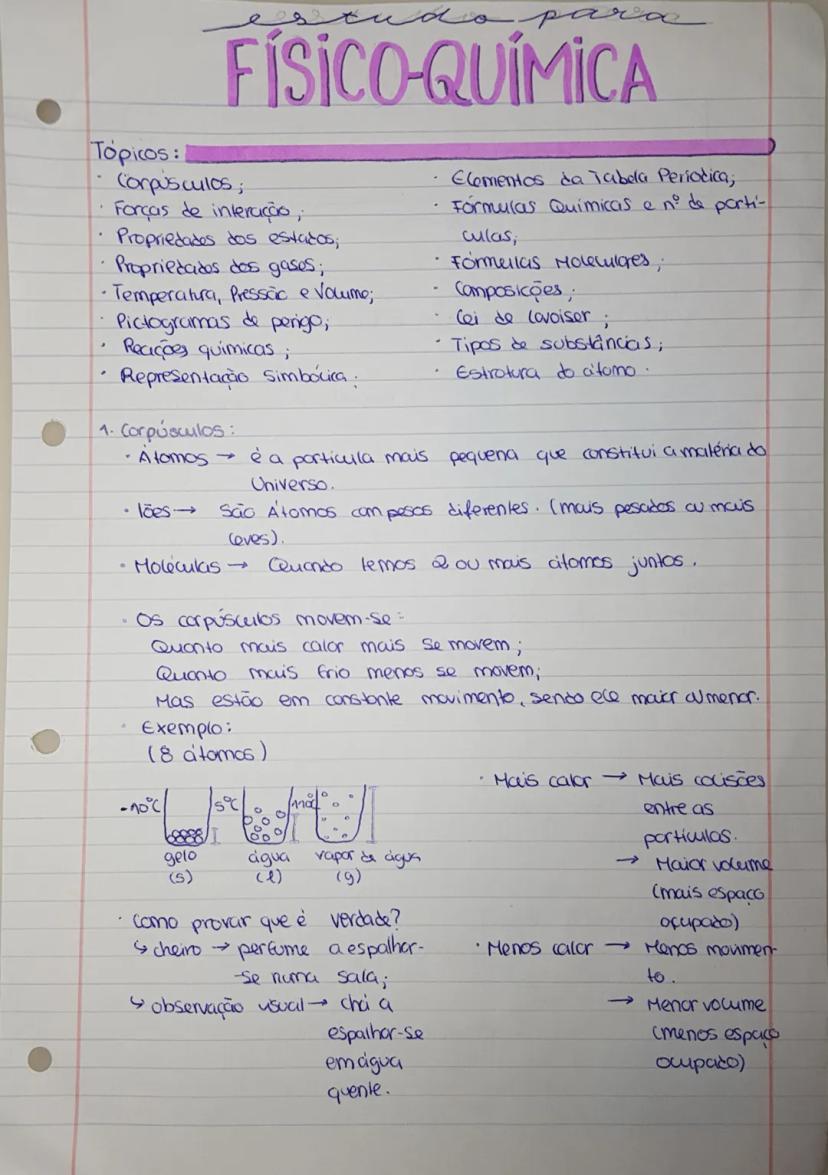 estudo para
FÍSICO-QUÍMICA
Tópicos:
· Corpúsculos;
· Forças de interação;
· Propriedades dos estados;
· Propriedades dos gases;
· Temperatura, Pressão e Volume;
· Pictogramas de perigo;
· Reações químicas;
· Representação simbólica;
· Elementos da Tabela Periódica;
· Fórmulas Químicas e nº de partí-
culas;
· Fórmulas Moleculares;
· Composições;
· Lei de lavoiser;
· Tipos de substâncias;
· Estrotura do átomo.
1. Corpúsculos:
· Átomos → é a partícula mais pequena que constitui a matéria do
Universo.
· Iões → São Átomos com pesos diferentes. (mais pesados ou mais
leves).
· Moléculas → Quando temos 2 ou mais átomos juntos.
· Os corpúsculos movem-se:
Quanto mais calor mais se movem;
Quanto mais frio menos se movem;
Mas estão em constante movimento, sendo ele maior ou menor.
· Exemplo:
(8 átomos)
-10°C 5°C 110°
gelo água vapor de água
(s) (l) (g)
· Como provar que é verdade?
↳ cheiro → perfume a espalhar-
-se numa sala;
↳ observação usual → chá a
espalhar-se
em água
quente.
· Mais calor → Mais colisões
entre as
partículas.
→ Maior volume
(mais espaço
ocupado)
· Menos calor → Menos movimen-
to.
→ Menor volume
(menos espaço
ocupado)